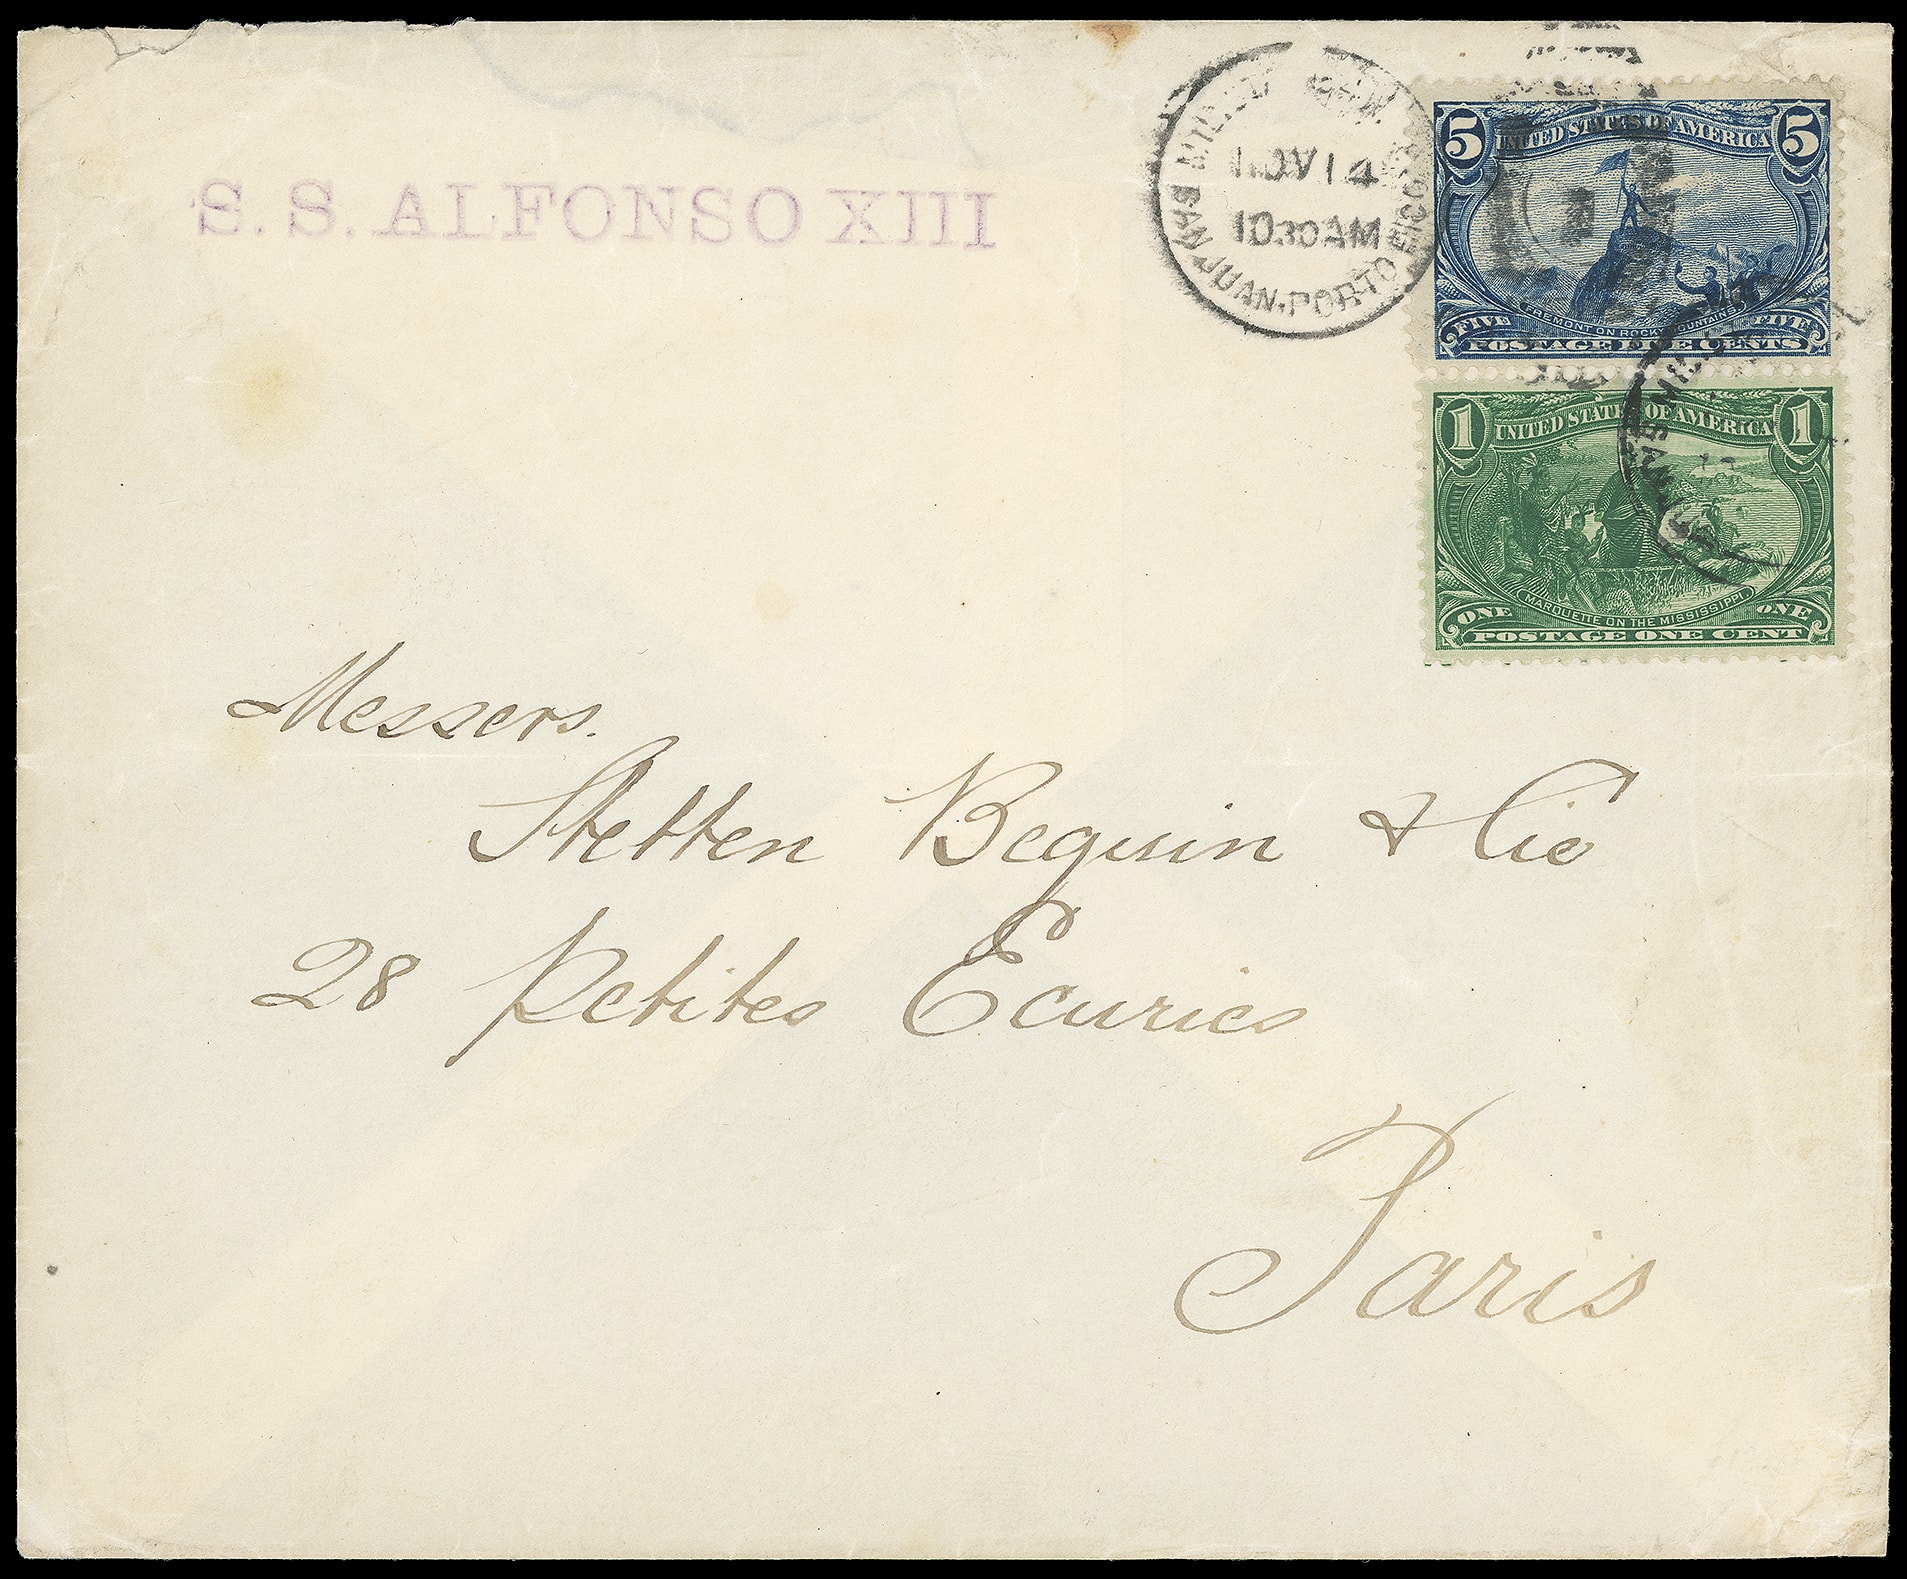 S. S. ALFONSO XIII
NOV 14
10 30 AM
SAN JUAN, PORTO RICO
5 UNITED STATES OF AMERICA 5
FREMONT ON ROCKY MOUNTAINS
FIVE FIVE
POSTAGE FIVE CENTS
1 UNITED STATES OF AMERICA 1
MARQUETTE ON THE MISSISSIPPI.
ONE ONE
POSTAGE ONE CENT
Messers.
Stetten Beguin & Cie
28 Petites Ecuries
Paris